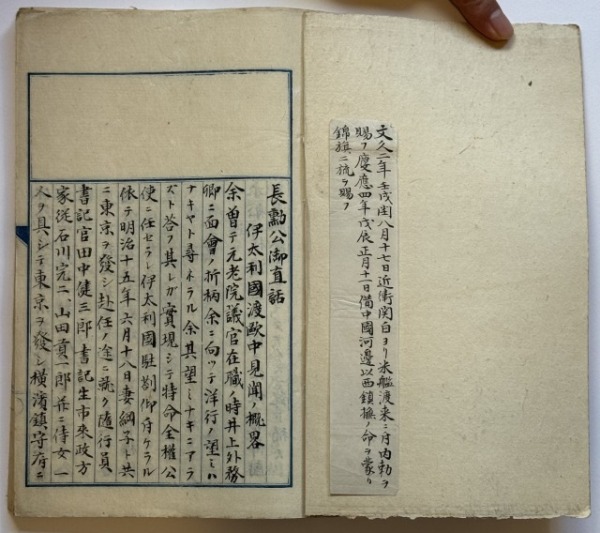 文久二年壬戌閏八月十七日近衛関白ヨリ米艦渡来ニ付内勅ヲ
賜フ慶應四年戊辰正月十一日備中國河邊以西鎮撫ノ命ヲ蒙リ
錦旗二旒ヲ賜フ
長勲公御直話
伊太利國渡欧中見聞ノ概畧
余曽テ元老院議官在職ノ時井上外務
卿ニ面會ノ折柄余ニ向ツテ洋行ノ望ミハ
ナキヤト尋ネラル余其望ミナキニアラ
ズト答フ其レガ實現シテ特命全權公
使ニ任セラレ伊太利國駐劄仰付ケラル
依テ明治十五年六月十八日妻綱子ト共
ニ東京ヲ發シ赴任ノ途ニ就ク随行員
書記官田中健三郎書記生市來政方
家從石川完二、山田貢一郎並ニ侍女一
人ヲ具シテ東京ヲ發シ横濱鎮守府ニ